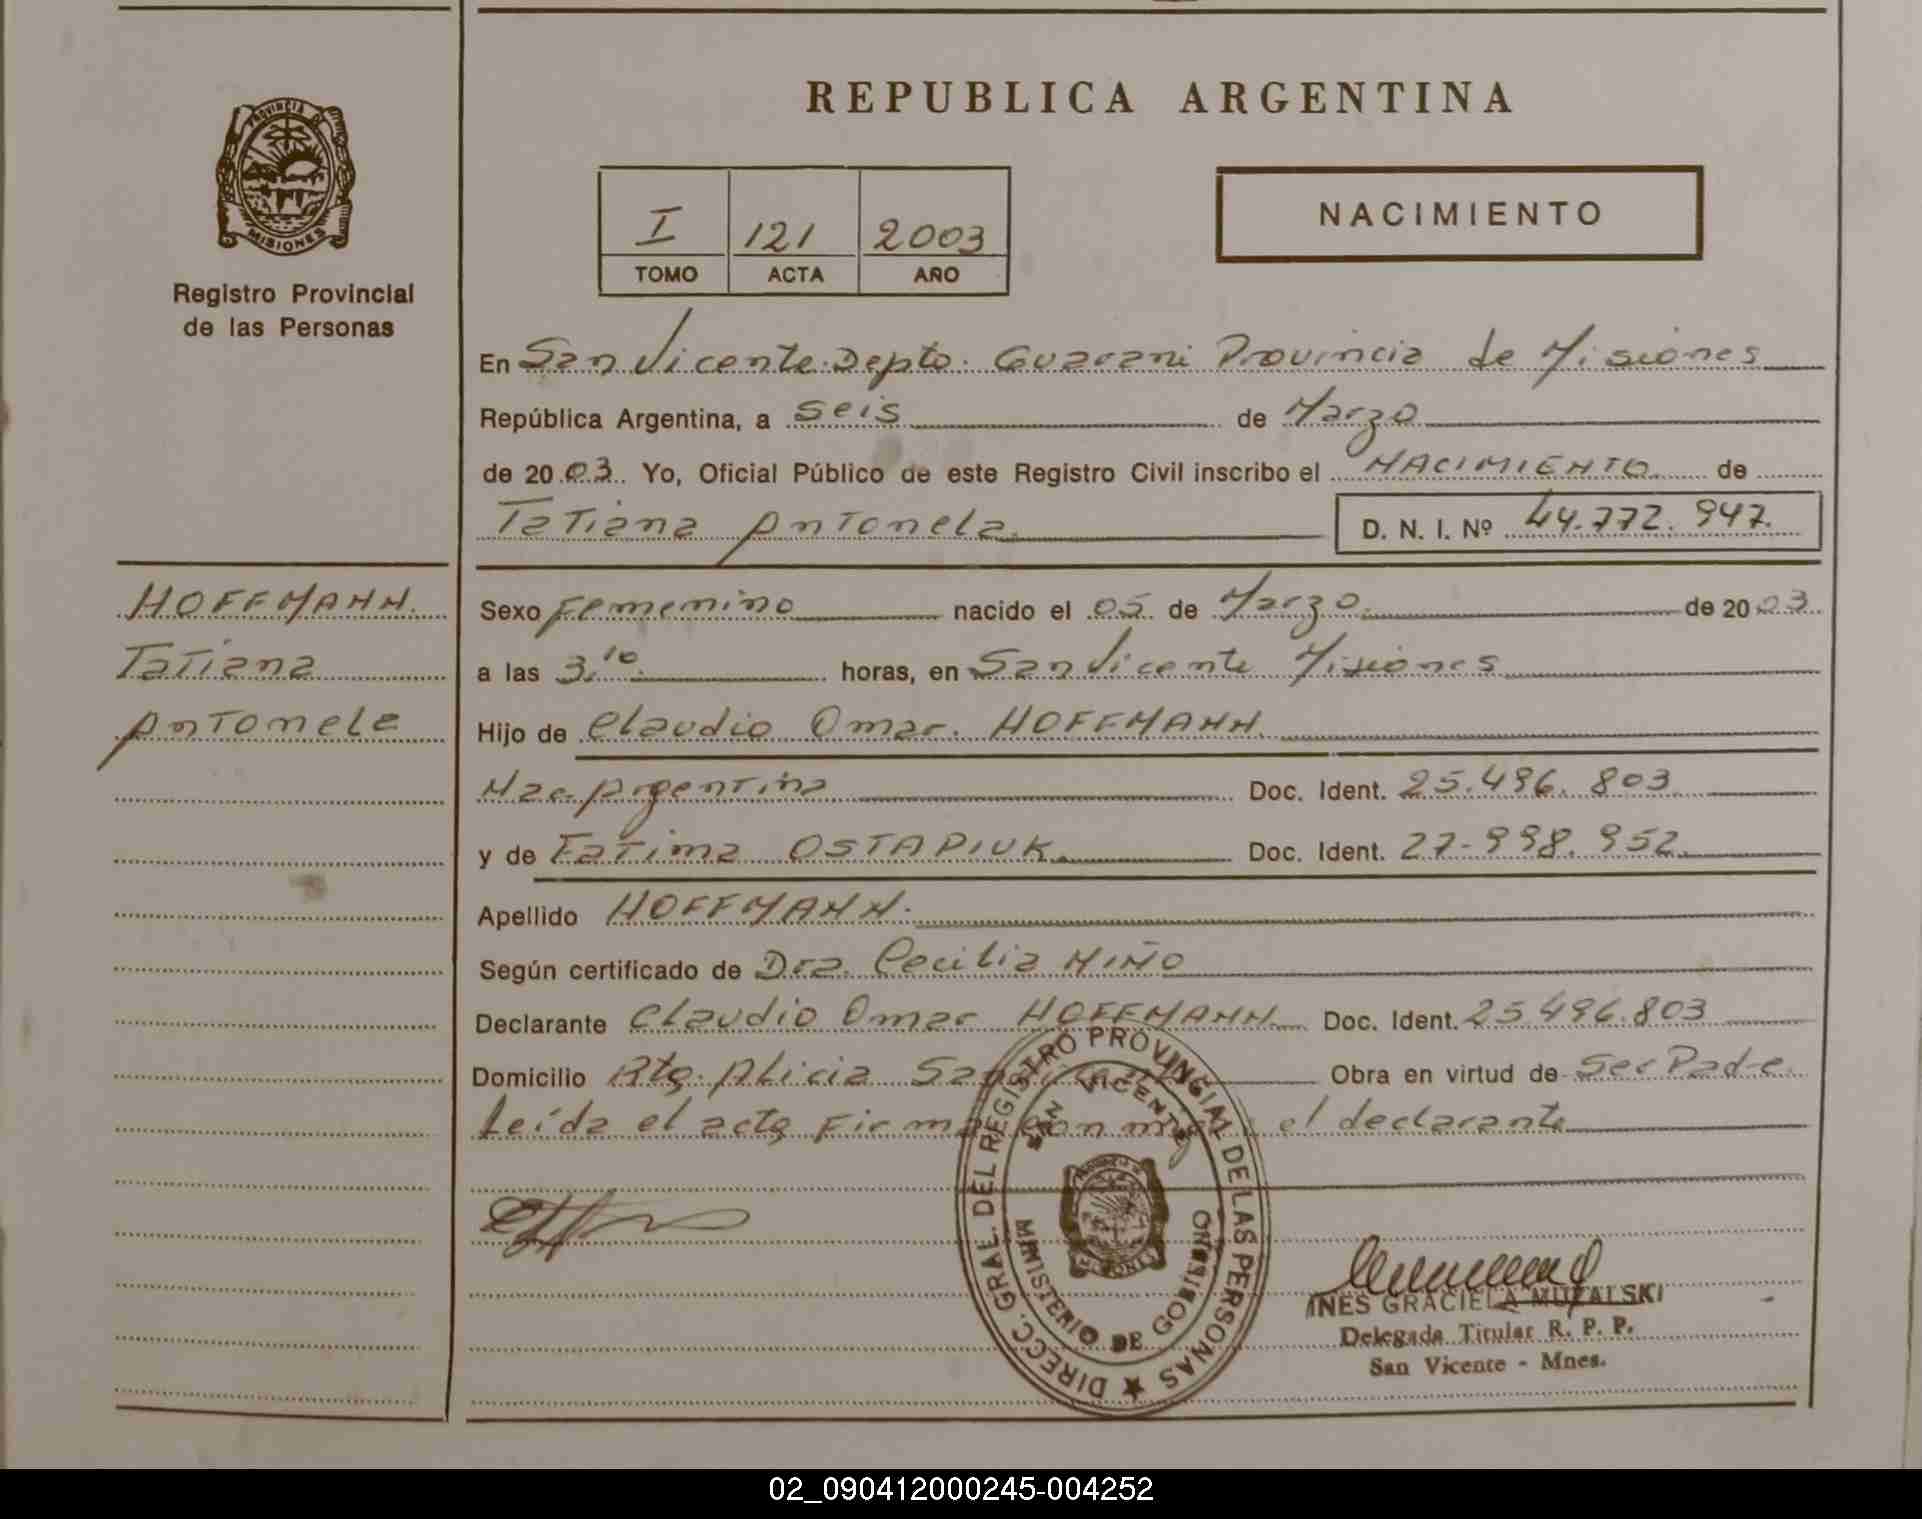 PROVINCIA DE
MISIONES
Registro Provincial
de las Personas
HOFFMANN.
Tatiana
Antonela
REPUBLICA ARGENTINA
I 121 2003
TOMO ACTA AÑO
NACIMIENTO
En San Vicente. Depto. Guarani Provincia de Misiones
República Argentina, a seis de Marzo
de 20 03. Yo, Oficial Público de este Registro Civil inscribo el NACIMIENTO de
Tatiana Antonela. D. N. I. Nº 44.772.947.
Sexo Femenino nacido el 05 de Marzo. de 20 03
a las 3.10 horas, en San Vicente Misiones
Hijo de Claudio Omar. HOFFMANN.
Nac. Argentina Doc. Ident. 25.496.803
y de Fatima OSTAPIUK. Doc. Ident. 27-998.952.
Apellido HOFFMANN.
Según certificado de Dra. Cecilia MIÑO
Declarante Claudio Omar HOFFMANN Doc. Ident. 25.496.803
Domicilio Rta. Alicia San Obra en virtud de Ser Padre
Leída el acta Firma con migo el declarante
DIRECC. GRAL. DEL REGISTRO PROVINCIAL DE LAS PERSONAS
SAN VICENTE
MINISTERIO DE GOBIERNO
MISIONES
INES GRACIELA MUZALSKI
Delegada Titular R. P. P.
San Vicente - Mnes.
02_090412000245-004252